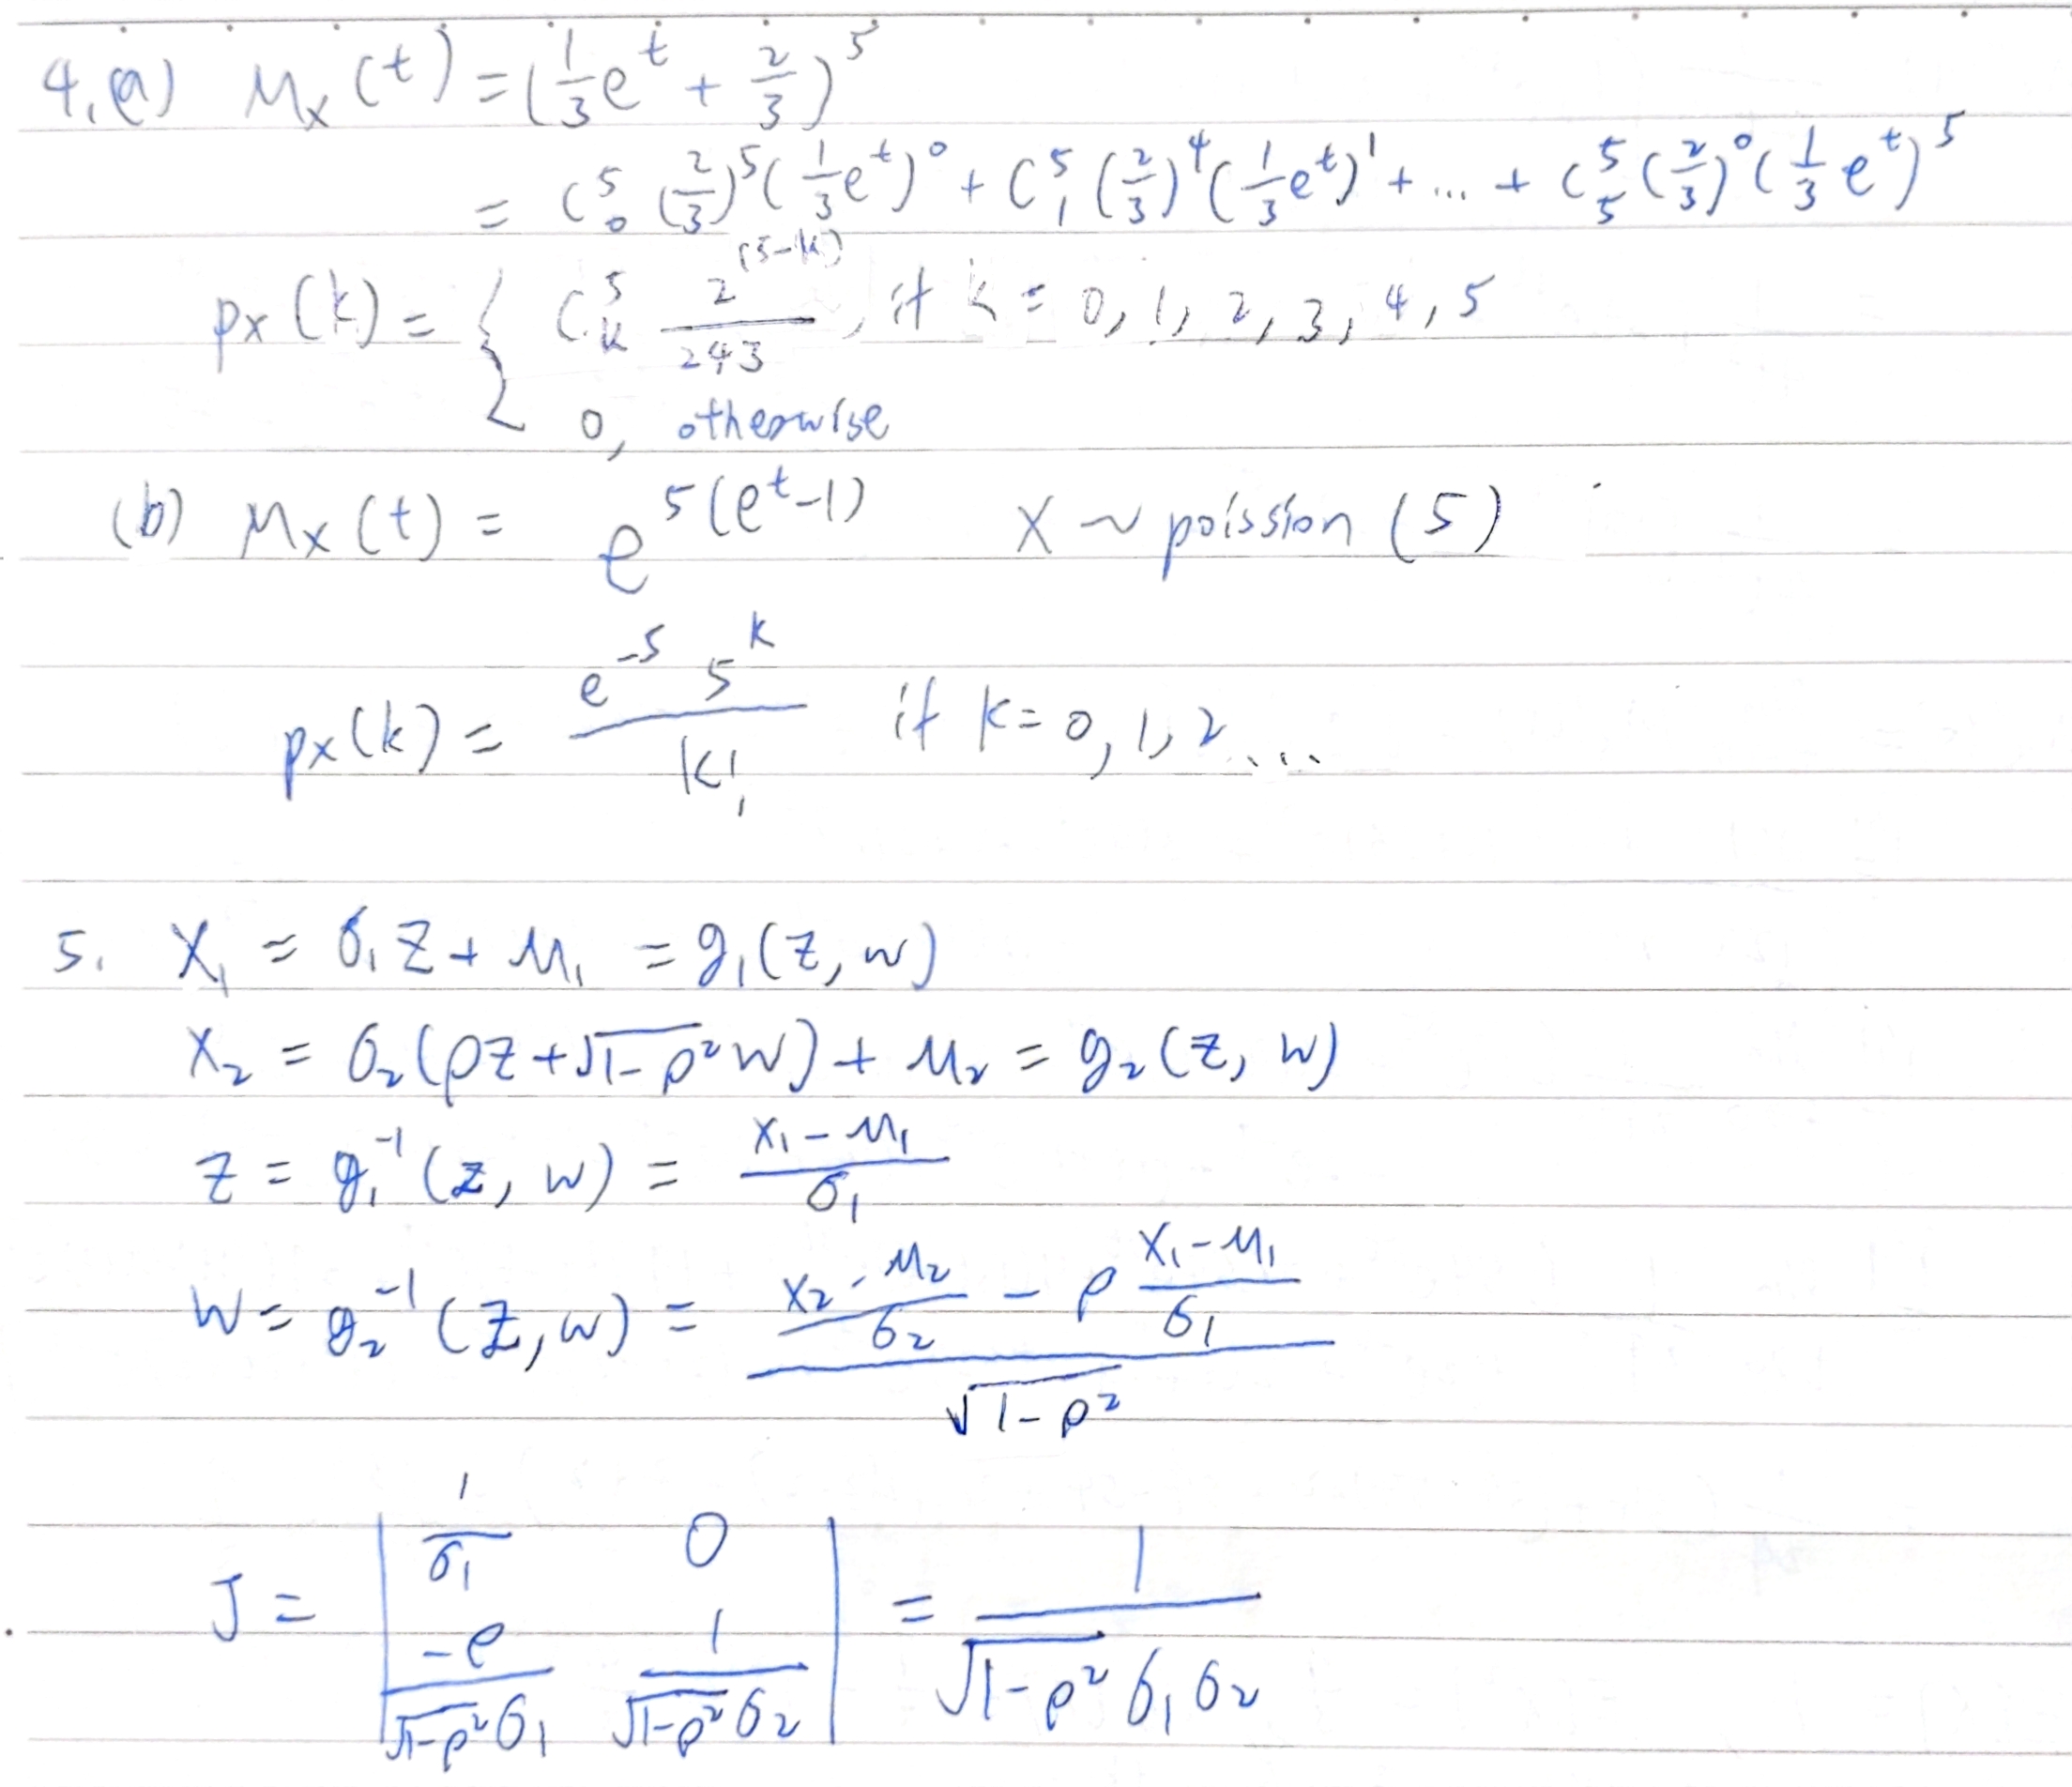 4.(a) M_X(t) = (1/3 e^t + 2/3)^5
= C^5_0 (2/3)^5 (1/3 e^t)^0 + C^5_1 (2/3)^4 (1/3 e^t)^1 + ... + C^5_5 (2/3)^0 (1/3 e^t)^5
p_X(k) = { C^5_k 2^(5-k)/243, if k = 0, 1, 2, 3, 4, 5
0, otherwise
(b) M_X(t) = e^5(e^t-1) X ~ poission (5)
p_X(k) = e^-5 5^k / k! if k = 0, 1, 2 ...
5. X_1 = σ_1 Z + μ_1 = g_1(Z, W)
X_2 = σ_2(ρZ + √(1-ρ^2) W) + μ_2 = g_2(Z, W)
Z = g_1^-1(Z, W) = (X_1 - μ_1)/σ_1
W = g_2^-1(Z, W) = ((X_2 - μ_2)/σ_2 - ρ (X_1 - μ_1)/σ_1) / √(1-ρ^2)
J = | 1/σ_1 0
-ρ/(√(1-ρ^2) σ_1) 1/(√(1-ρ^2) σ_2) | = 1/(√(1-ρ^2) σ_1 σ_2)